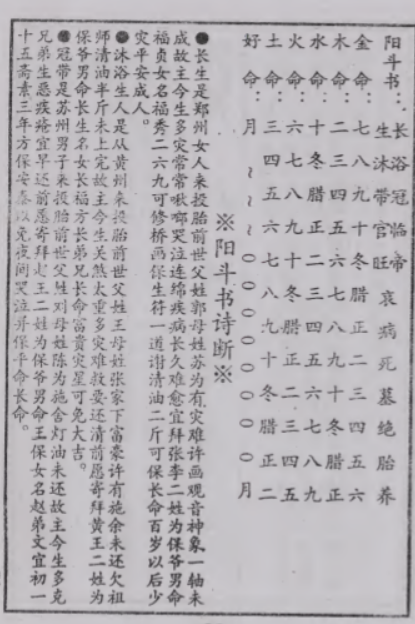 阳斗书：长生 沐浴 冠带 临官 帝旺 衰 病 死 墓 绝 胎 养
金命：七 八 九 十 冬 腊 正 二 三 四 五 六
木命：二 三 四 五 六 七 八 九 十 冬 腊 正
水命：十 冬 腊 正 二 三 四 五 六 七 八 九
火命：六 七 八 九 十 冬 腊 正 二 三 四 五
土命：三 四 五 六 七 八 九 十 冬 腊 正 二
好命：月 ~ ~ ~ 0 0 0 0 0 0 0 月
※阳斗书诗断※
●长生是郑州女人来投胎前世父姓郭母姓苏为有灾难许画观音神象一轴未
成故主今生多灾常常啾唧哭泣连绵疾病长久难愈宜拜张李二姓为保爷男命
福贞女名福秀二六九可修桥画保生符一道谢清油二斤可保长命百岁以后少
灾平安成人。
●沐浴生人是从黄州来投胎前世父姓王母姓张家下富豪许有施余未还欠祖
师清油半斤未上完故主今生关煞太重多灾难救要还清前愿寄拜黄王二姓为
保爷男命长生名女长福方长弟兄长命富贵灾星可免大吉。
●冠带是苏州男子来投胎前世父姓刘母姓陈为施舍灯油未还故主今生多克
兄弟生恶疾疮宜早还前愿寄拜赵王二姓为保爷男命王保女名赵弟文宜初一
十五斋素三年方保安以免夜间哭泣并保平命长命。